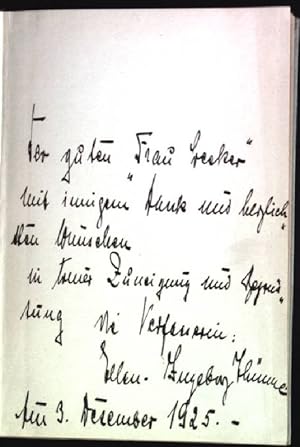 Der guten "Frau Lecker"
mit innigem Dank und herzlich-
sten Wünschen
in treuer Zuneigung und
tung die Verfasserin:
Ellen-Ingeborg
Am 3. Dezember 1925. -